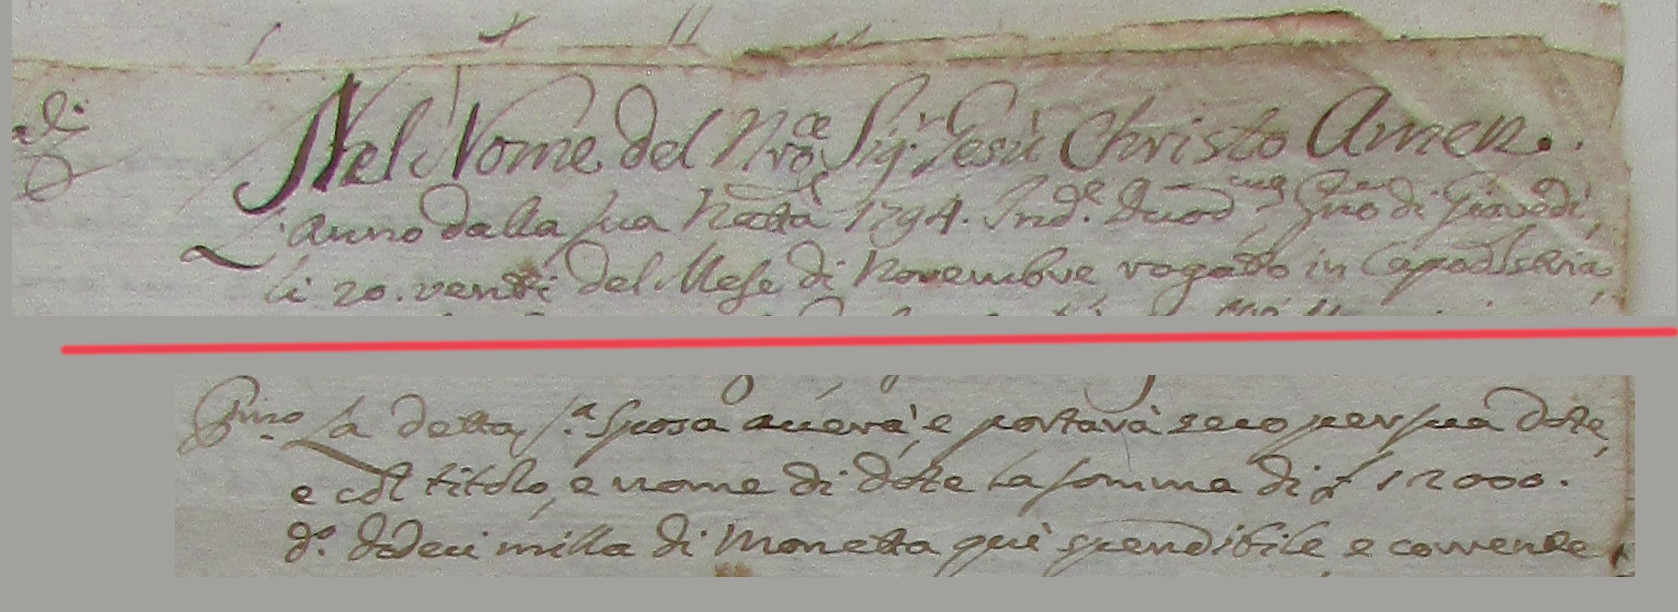 Nel Nome del Nro Sigr Iesù Christo Amen.
L'anno dalla sua Nattà 1794. Indе Duodma Gno di Giovedì,
li 20. venti del Mese di Novembre rogatto in Capod'Istria,
Pmo. La detta Sa. Sposa averà, e portarà seco per sua Dote,
e col titolo, e nome di Dote la somma di £ 12000.
do. dodeci milla di Monetta quì spendibile, e corrente